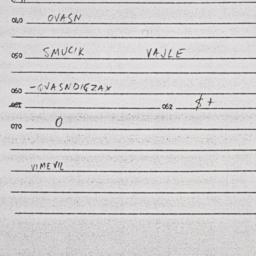 040 OVASN
050 SMUCIK VAJLE
060 -OVASNDIGZAX
062 $ +
070 O
VIMEVIL